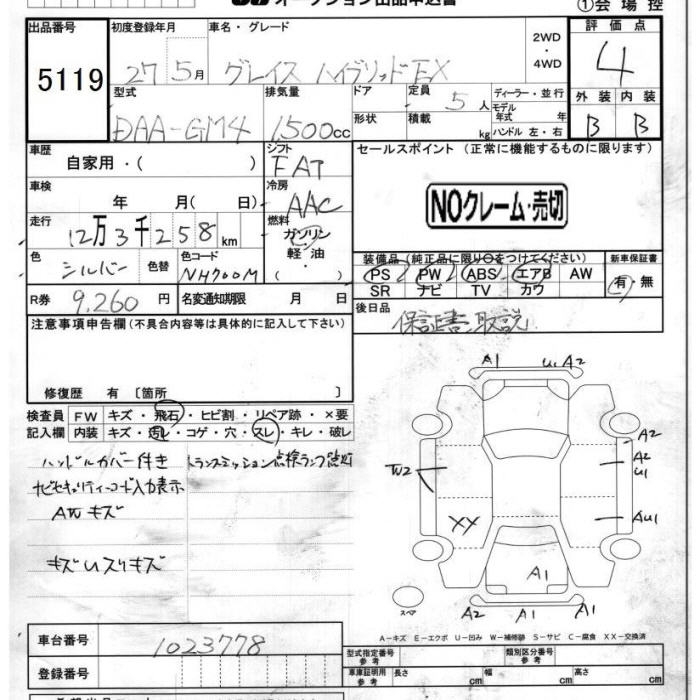 オークション出品申込書 ①会場控
出品番号 初度登録年月 車名・グレード 2WD・4WD 評価点
5119 27 5月 グレイス ハイブリッド EX 4
型式 排気量 ドア 定員 5人 ディーラー・並行 外装 内装
DAA-GM4 1500cc 形状 積載 kg モデル年式 年 ハンドル 左・右 B B
車歴 自家用・( ) シフト FAT セールスポイント (正常に機能するものに限ります)
車検 年 月( 日) 冷房 AAC NOクレーム・売切
走行 12万3千258km 燃料 ガソリン 軽油・( )
色 シルバー 色替 色コード NH700M
装備品 (純正品に限り○をつけてください) 新車保証書
PS PW ABS エアB AW 有・無
SR ナビ TV カワ
R券 9,260円 名変通知期限 月 日 後日品
保証書、取説
注意事項申告欄(不具合内容等は具体的に記入して下さい)
修復歴 有〔箇所 〕
検査員 FW キズ・飛石・ヒビ割・リペア跡・×要
記入欄 内装 キズ・汚レ・コゲ・穴・スレ・キレ・破レ
ハンドルカバー付き トランスミッション点検ランプ点灯
ナビセキュリティーコード入力表示
AWキズ
キズUスリキズ
A1 U1 A2
A2
A2
U1
W2
XX AU1
A1
スペア A2 A1 A1
A－キズ E－エクボ U－凹み W－補修跡 S－サビ C－腐食 XX－交換済
車台番号 1023778
登録番号
型式指定番号 参考 類別区分番号 参考
車庫証明用 参考 長さ cm 幅 cm 高さ cm